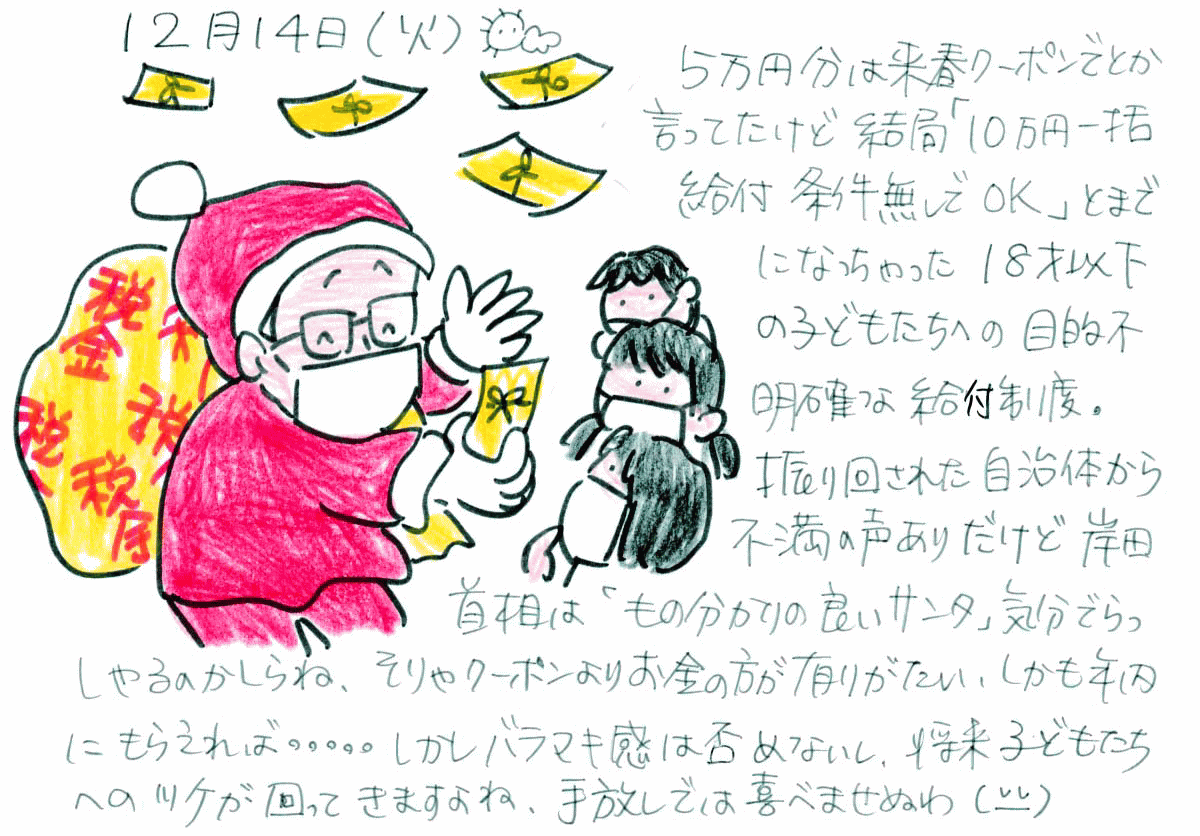 12月14日(火)
5万円分は来春クーポンでとか
言ってたけど 結局「10万円一括
給付 条件無しでOK」とまで
になっちゃった 18才以下
の子どもたちへの 目的不
明確な 給付制度。
振り回された 自治体から
不満の声ありだけど 岸田
首相は「もの分かりの良いサンタ」気分でらっ
しゃるのかしらね、そりゃクーポンよりお金の方が有りがたい、しかも年内
にもらえれば・・・・・ しかしバラマキ感は否めないし、将来子どもたち
へのツケが回ってきますよね、手放しでは喜べませぬわ
税金
税
税
税